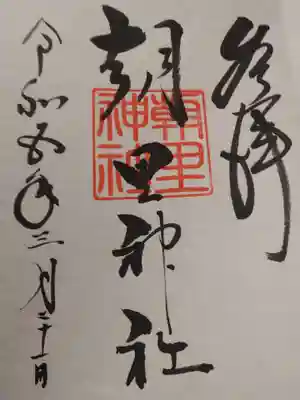 奉拝
朝里神社
令和五年三月二十一日
朝里
神社